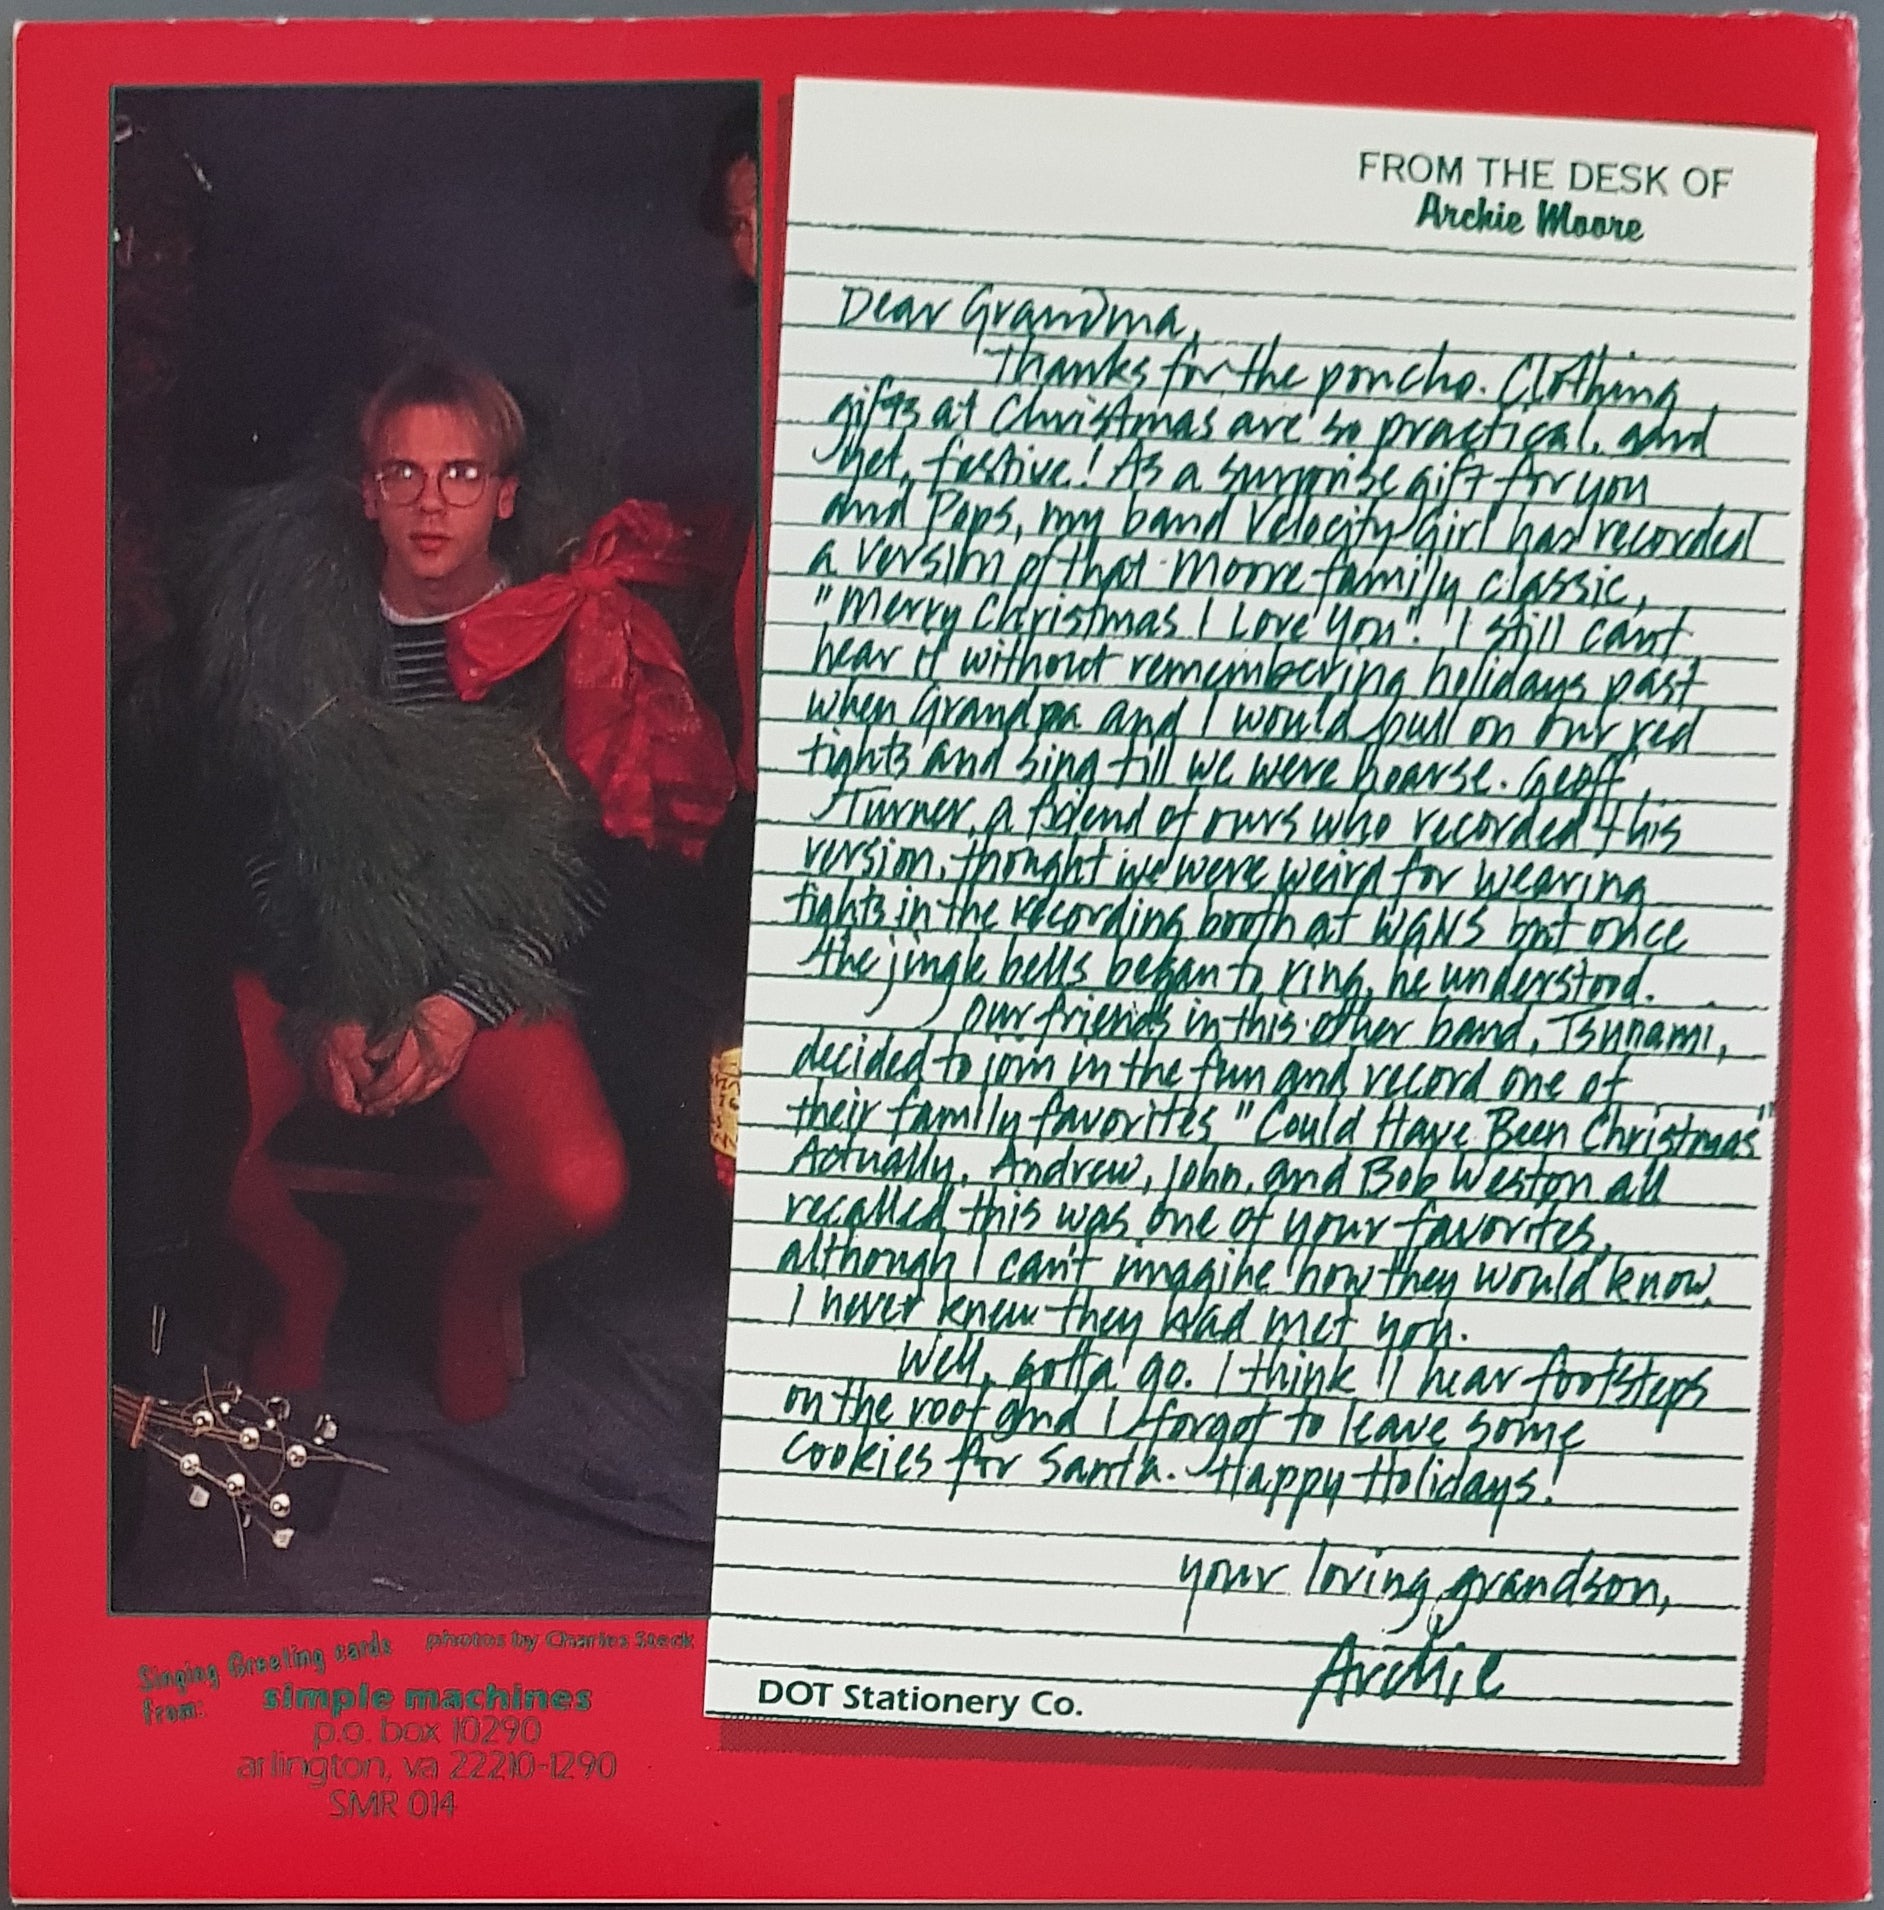 FROM THE DESK OF
Archie Moore
Dear Grandma,
Thanks for the poncho. Clothing
gifts at Christmas are so practical, and
yet, festive! As a surprise gift for you
and Pops, my band Velocity Girl has recorded
a version of that Moore family classic,
"Merry Christmas I Love You". I still can't
hear it without remembering holidays past
when Grandpa and I would pull on our red
tights and sing till we were hoarse. Geoff
Turner, a friend of ours who recorded this
version, thought we were weird for wearing
tights in the recording booth at WGNS but once
the jingle bells began to ring, he understood.
Our friends in this other band, Tsunami,
decided to join in the fun and record one of
their family favorites "Could Have Been Christmas"
Actually, Andrew, John, and Bob Weston all
recalled this was one of your favorites,
although I can't imagine how they would know.
I never knew they had met you.
Well, gotta go. I think I hear footsteps
on the roof and I forgot to leave some
cookies for Santa. Happy Holidays!
your loving grandson,
Archie
DOT Stationery Co.
photos by Charles Steck
Singing Greeting cards
from:
simple machines
p.o. box 10290
arlington, va 22210-1290
SMR 014